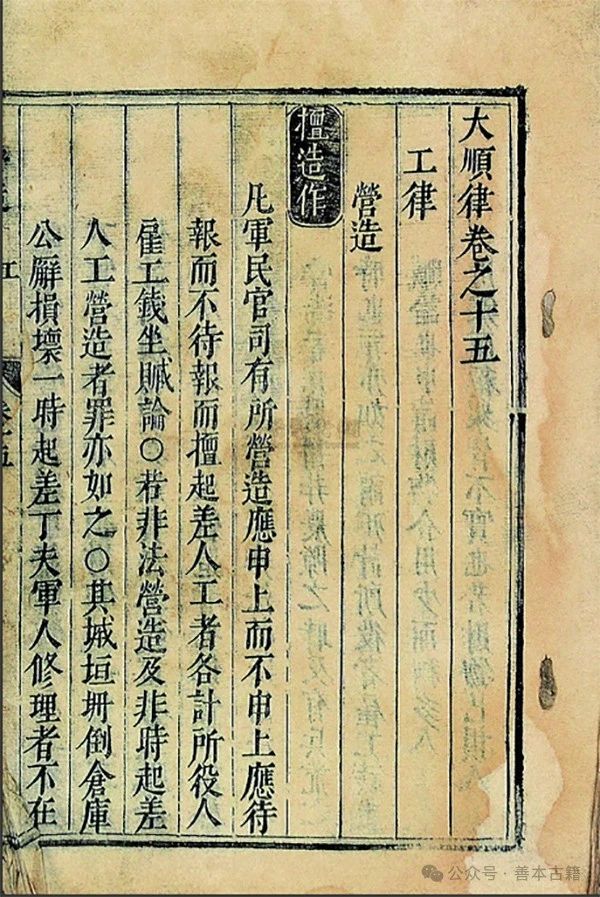 大順律卷之十五
工律
營造
擅造作
凡軍民官司有所營造應申上而不申上應待
報而不待報而擅起差人工者各計所役人
雇工錢坐贓論○若非法營造及非時起差
人工營造者罪亦如之○其城垣坍倒倉庫
公廨損壞一時起差丁夫軍人修理者不在
公众号 · 善本古籍